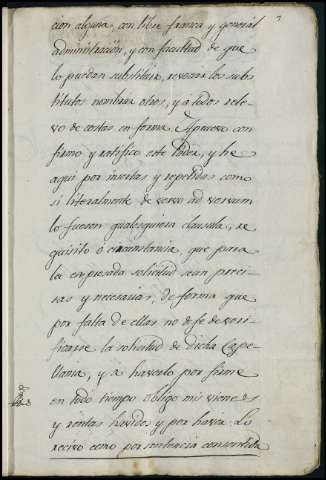 cion alguna, con libre franca y general
administracion, y con facultad de que
lo puedan substituir, revocar los subs
titutos nombrar otros, y à todos rele-
vo de costas en forma. Apruevo con
firmo y ratifico este Poder, y he
aqui por insertas y repetidas como
si literalmente de vervo ad vervum
lo fueron qualesquiera clausula, re
quisito o circunstancia, que para
la expresada solicitud sean preci-
sas y necesarias, de forma que
por falta de ellas no dexe de veri-
ficarse la solicitud de dicha Cape-
llania, y a haverlo por firme
en todo tiempo obligo mis vienes
y rentas havidos y por haver. Lo
recivo como por sentencia consentida